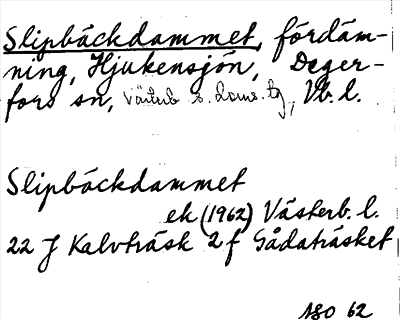 Slipbäckdammet, fördäm-
ning, Hjukensjön, Deger-
fors sn, Västerb. s. doms. tg, Vb. l.
Slipbäckdammet
ek (1962) Västerb. l.
22 J Kalvträsk 2 f Gådaträsket
ASO 62